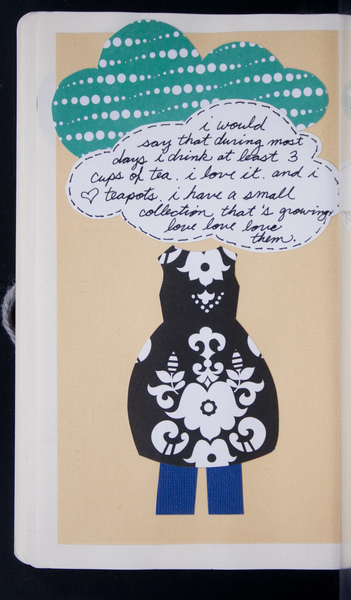 i would
say that during most
days i drink at least 3
cups of tea. i love it. and i
♡ teapots. i have a small
collection that's growing
love love love
them.